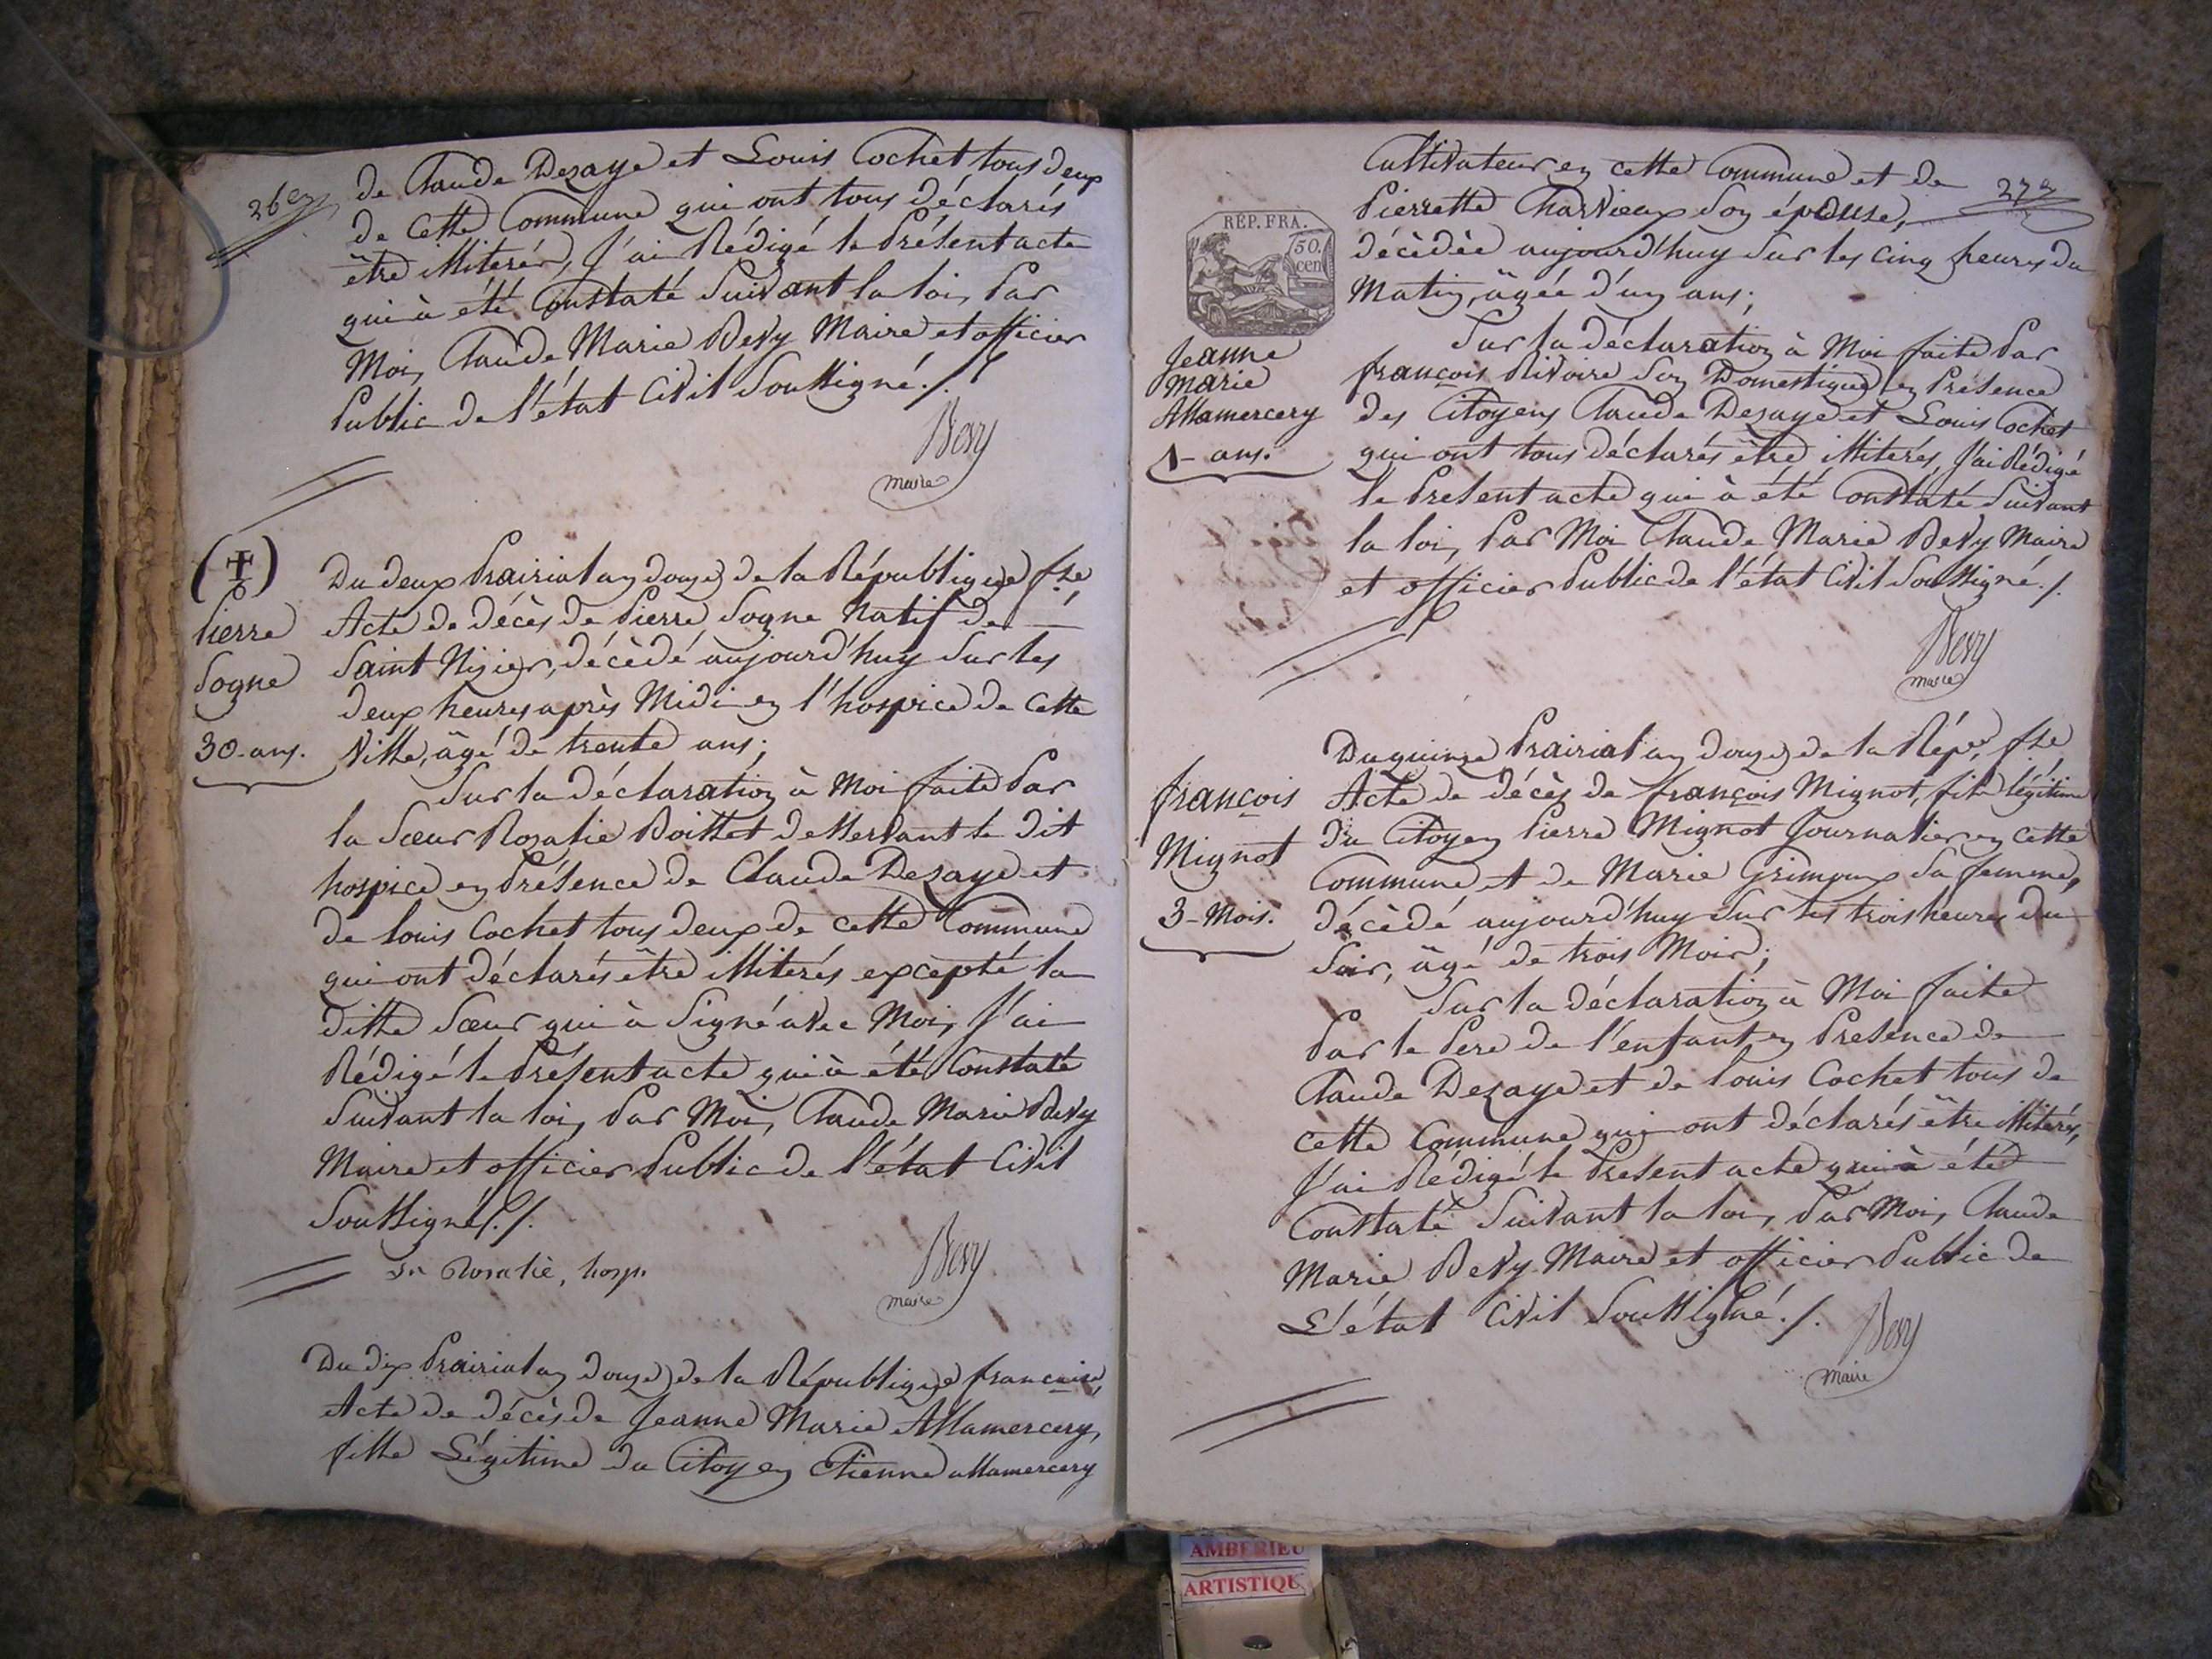 26e
de Claude Dezaye et Louis Cochet tous deux
de cette Commune qui ont tous déclarés
être illiterés, J'ai Rédigé le Présent acte
qui à été Constaté Suivant la loi, Par
Moi, Claude Marie Bevy Maire et officier
Public de l'état Civil Soussigné./.
Bevy
maire
(✝)
Pierre
Sogne
30-ans.
Du deux Prairial an douze de la République fse,
Acte de décès de Pierre Sogne Natif de
Saint Nizier, décèdé aujourd'huy Sur les
deux heures après Midi en l'hospice de cette
Ville, âgé de trente ans;
Sur la déclaration à Moi faite Par
la Sœur Rozalie Boillet desservant le dit
hospice en Présence de Claude Dezaye et
de louis Cochet tous deux de cette Commune
qui ont déclarés être illiterés excèpté la
ditte Sœur qui à Signé avec Moi, J'ai
Rédigé le Présent acte qui à été Constaté
Suivant la loi, Par Moi, Claude Marie Bevy
Maire et officier Public de l'état Civil
Soussigné./.
Sr Rosalie, hosp.
Bevy
maire
Du dix Prairial an douze de la République francaise,
Acte de décès de Jeanne Marie Allamercery,
fille Légitime du Citoyen Etienne allamercery
27e
Cultivateur en cette Commune et de
Pierrette Charvieux Son épouse,
décèdèe aujourd'huy Sur les Cinq heures du
Matin, âgée d'un ans;
REP. FRA.
50.
cen
Jeanne
Marie
Allamercery
1-ans.
Sur la déclaration à Moi faite Par
françois Rivoire Son Domestique en Présence
des Citoyens Claude Dezaye et Louis Cochet
qui ont tous déclarés être illiterés, J'ai Rédigé
le Present acte qui à été Constaté Suivant
la loi, Par Moi Claude Marie Bevy Maire
et officier Public de l'état Civil Soussigné./.
Bevy
maire
françois
Mignot
3-Mois.
Du quinze Prairial an douze de la Rép. fse,
Acte de décès de françois Mignot, fils légitime
du Citoyen Pierre Mignot Journalier en cette
Commune et de Marie Grimoux Sa femme,
décèdé aujourd'huy Sur les trois heures du
Soir, âgé de trois Mois;
Sur la déclaration à Moi faite
Par le Pere de l'enfant en Presence de
Claude Dezaye et de louis Cochet tous de
cette Commune qui ont déclarés être illiterés,
J'ai Rédigé le Present acte qui à été
Constaté Suivant la loi, Par Moi, Claude
Marie Bevy Maire et officier Public de
L'état Civil Soussigné./.
Bevy
maire
AMBERIEU
ARTISTIQU